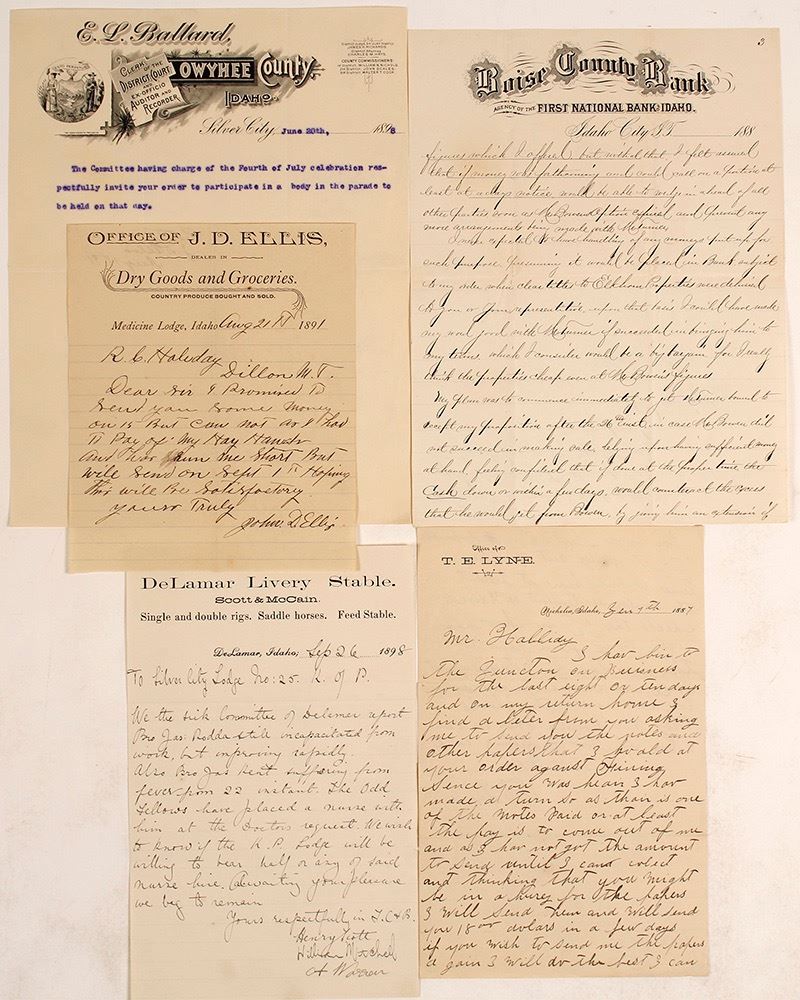 E. L. Ballard,
CLERK OF THE
DISTRICT COURT
AND EX-OFFICIO
AUDITOR AND
RECORDER
OWYHEE County,
IDAHO.
COUNTY COMMISSIONERS
Silver City, June 20th, 1898
The Committee having charge of the Fourth of July celebration res-
pectfully invite your order to participate in a body in the parade to
be held on that day.
OFFICE OF J. D. ELLIS,
DEALER IN
Dry Goods and Groceries.
COUNTRY PRODUCE BOUGHT AND SOLD.
Medicine Lodge, Idaho Aug 21st 1891
R. C. Haliday
Dillon M.T.
Dear Sir I Promised To
Send you Some Money
on 15 But Can Not as I had
To Pay of My Hay Hands
and has run me Short But
will Send on Sept 1st Hoping
this will Be Satisfactory
yours Truly
John D Ellis
3
Boise County Bank
AGENCY OF THE FIRST NATIONAL BANK OF IDAHO.
Idaho City I.T. 188
figures which I offered but wished that I felt assured
that if money was forthcoming and could call on a portion at
least at a days notice would be able to in ahead of all
other parties even as McBowen option expired and prevent any
more arrangements being made with McTurner
I never expected to have handling of any moneys put up for
such purpose presuming it would be placed in Bank subject
to my order when clear titles to Elkhorn Properties were delivered
to you or your representative, upon that basis I could have made
my word good with McTurner if succeeded in bringing him to
my terms, which I consider would be a big bargain for I really
think the properties cheap even at McBowen's figures
My plan was to commence immediately to get McTurner bound to
accept my proposition after the 26th inst. in case McBowen did
not succeed in making sale, relying upon having sufficient money
at hand, feeling confident that if done at the proper time the
Cash down or within a few days, would counteract the excess
that he would get from Bowen, by giving him an extension of
DeLamar Livery Stable.
Scott & McCain.
Single and double rigs. Saddle horses. Feed Stable.
DeLamar, Idaho, Sep 26 1898
To Silver City Lodge No: 25. K. of P.
We the sick Committee of Delamar report
Bro Jas. Rodda still incapacitated from
work, but improving rapidly.
Also Bro Jas Kent, suffering from
fever from 22 instant. The Odd
Fellows have placed a nurse with
him at the Doctors request. We wish
to know if the K. P. Lodge will be
willing to bear half or any of said
nurse hire, Awaiting your pleasure
we beg to remain
Yours respectfully in F. C & B.
Henry Scott
William Mitchell
A Warren
Office of
T. E. LYNE.
Nicholia, Idaho, 7th 1887
Mr. Halliday
I hav bin to
the Juncton on Buisness
for the last eight or ten days
and on my return home I
find a leter from you asking
me to send you the notes and
other papers that I hold at
your order against
Sence you was hear I hav
made a turn so as thar is one
of the notes Paid or at least
the pay is to come out of me
and as I hav not got the amount
to send until I can colect
and thinking that you might
be in a hurey for the papers
I will send them and will send
you 18 00 dolars in a few days
if you wish to send me the papers
a gain I will do the best I can